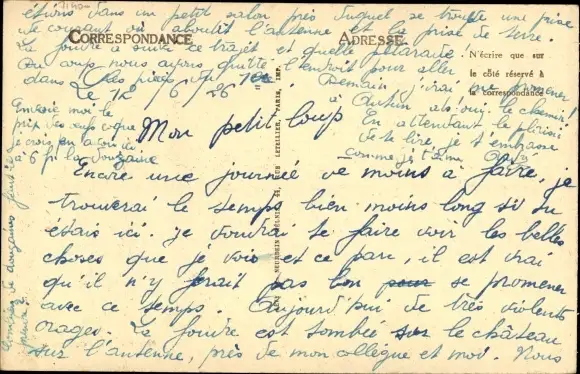 Le 12/6/26
Mon petit loup
Encore une journée de moins à faire, je
trouverai le temps bien moins long si tu
étais ici. je voudrai te faire voir les belles
choses que je vois et ce parc, il est vrai
qu'il n'y ferait pas bon pour se promener
avec ce temps. Aujourd'hui de très violents
orages. La foudre est tombée sur le château
sur l'antenne, près de mon collègue et moi. Nous
étions dans un petit salon près duquel se trouve une prise
de courant où aboutit l'antenne et la prise de terre.
La foudre a suivi ce trajet et quelle
Du coup nous avons quitté l'endroit pour aller
dans les pièces du
Demain j'irai me promener
à Autun
En attendant le plaisir
de te lire, je t'embrasse
comme je t'aime
Envoie moi le
prix des œufs coque
je crois en avoir
à 6 f la douzaine
CORRESPONDANCE
ADRESSE
N'écrire que sur
le côté réservé à
la correspondance
NEURDEIN RUE LETELLIER, PARIS, IMP.